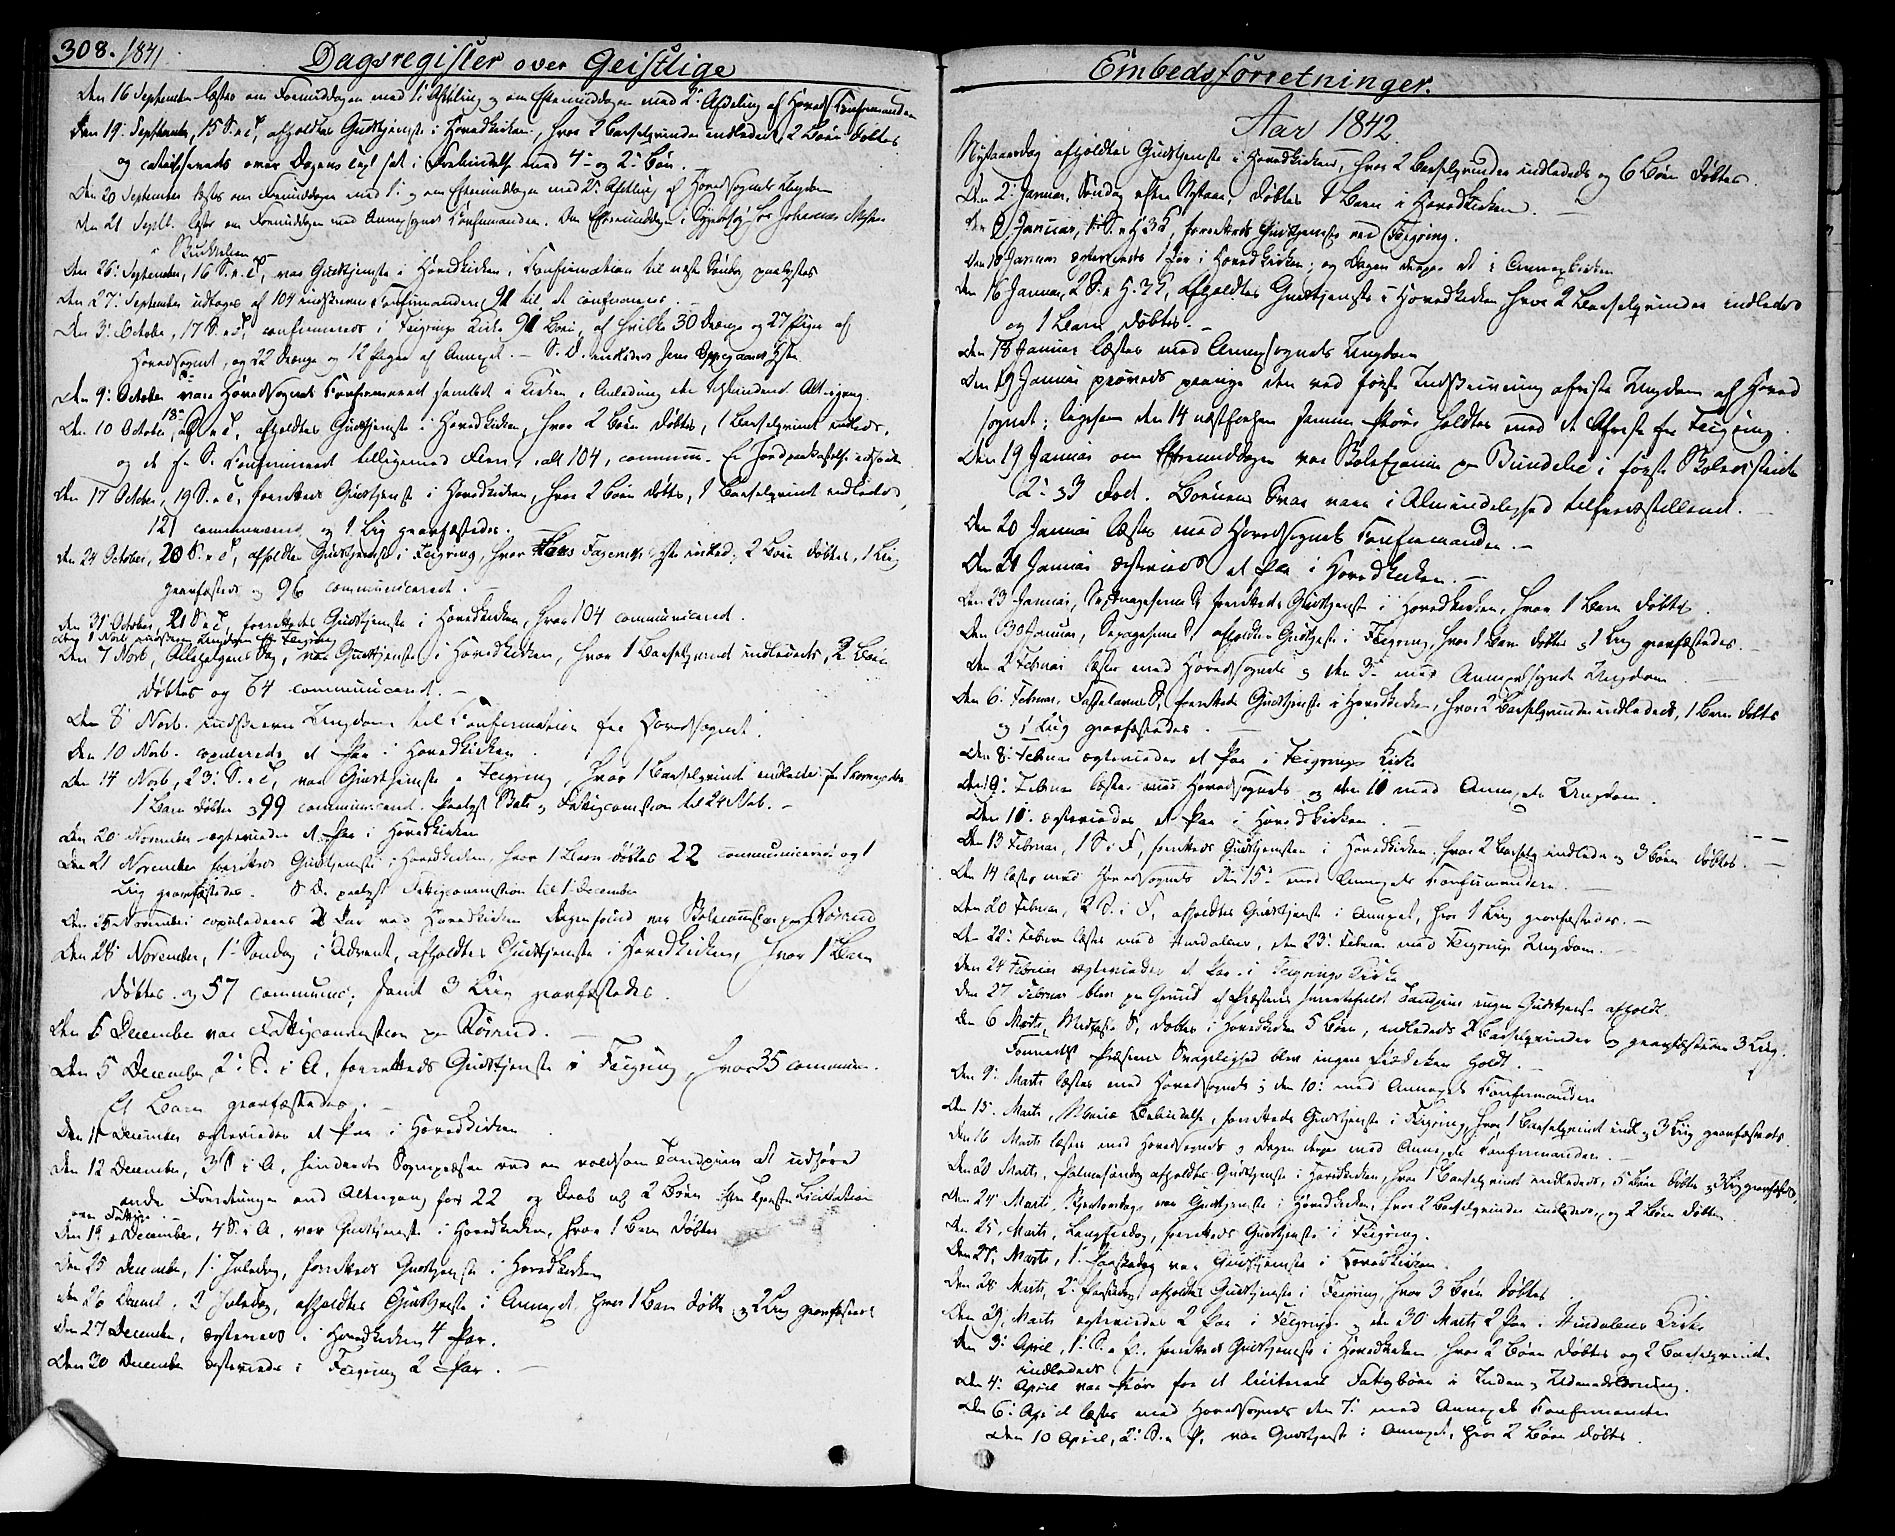 308. 1841. Dagsregister over Geistlige
Den 16 September læstes om Formiddagen med 1ste Afdeling og om Eftermiddagen med 2den Afdeling af Hovedsognets Confirmander
Den 19 September, 15 S. e. T., afholdtes Gudstjeneste i Hovedkirken, hvor 2 Barselqvinder indlededes, 2 Børn døbtes
og catechiseredes over Dagens Text
Den 20 September læstes om Formiddagen med 1. og om Eftermiddagen med 2. Afdeling af Hovedsognets Ungdom
Den 21 Septb. læstes om Formiddagen med Annexsognets Confirmander. Om Eftermiddagen
Den 26 September, 16 S. e. T., var Gudstjeneste i Hovedkirken. Confirmation til næste Søndag
Den 27 September udtoges af 104 indskrevne Confirmander 91 til at confirmeres.
Den 3 October, 17 S. e. T., confirmeredes i Feigrings Kirke 91 Børn, af hvilke 30 Drenge og 27 Piger af
Hovedsognet, og 22 Drenge og 12 Piger af Annexet. — S. D. indlededes
Den 9 October vare Hovedsognets Confirmerede samlede i Kirken i Anledning
Den 10 October, 18 S. e. T., afholdtes Gudstjeneste i Hovedkirken, hvor 2 Børn døbtes, 1 Barselqvinde indledes,
og de Confirmerede tilligemed Flere, i alt 104, commun.
Den 17 October, 19 S. e. T., forrettedes Gudstjeneste i Hovedkirken, hvor 2 Børn døbtes, 1 Barselqvinde indledes,
121 communicerede og 1 Lig graavfæstedes.
Den 24 October, 20 S. e. T., afholdtes Gudstjeneste i Feigring, hvor 2 Børn døbtes, 1 Lig
graavfæstedes og 96 communicerede.
Den 31 October, 21 S. e. T., forrettedes Gudstjeneste i Hovedkirken, hvor 104 communicerede.
Den 1 Novb. indskreven Ungdom fra Feigring
Den 7 Novb., Allehelgens Dag, var Gudstjeneste i Hovedkirken, hvor 1 Barselqvinde indlededs, 2 Børn
døbtes og 64 communicerede. —
Den 8 Novb. indskreven Ungdom til Confirmation fra Hovedsognet.
Den 10 Novb. copuleredes et Par i Hovedkirken.
Den 14 Novb., 23 S. e. T., var Gudstjeneste i Feigring, hvor 1 Barselqvinde indledes
1 Barn døbtes og 99 communicerede. til 24 Nob. —
Den 20 November egteviedes et Par i Hovedkirken
Den 21 November forrettedes Gudstjeneste i Hovedkirken, hvor 1 Barn døbtes 22 communicerede og 1
Lig graavfæstedes. S. D. Fattigcommission til 1 December
Den 25 November copuleredes 2 Par ved Hovedkirken
Den 28 November, 1 Søndag i Advent, afholdtes Gudstjeneste i Hovedkirken, hvor 1 Barn
døbtes og 57 commun., samt 3 Lig graavfæstedes.
Den 5 December var Fattigcommission paa Rørud. —
Den 5 December, 2 S. i A., forrettedes Gudstjeneste i Feigring, hvor 35 commun.
Et Barn graavfæstedes.
Den 11 December egteviedes et Par i Hovedkirken
Den 12 December, 3 S. i A., hindredes Sognepræsten ved en voldsom Tandpine at udføre
andre Forretninger end Altergang for 22 og Daab af 2 Børn
Den 19 December, 4 S. i A., var Gudstjeneste i Hovedkirken, hvor 1 Barn døbtes
Den 25 December, 1 Juledag, forrettedes Gudstjeneste i Hovedkirken
Den 26 Decemb., 2 Juledag, afholdtes Gudstjeneste i Annexet, hvor 1 Barn døbtes og 2 Lig graavfæstedes
Den 27 December, egteviedes i Hovedkirken 4 Par.
Den 30 December egteviedes i Feigring 2 Par. —
Embedsforretninger.
Aar 1842
Nytaarsdag afholdtes Gudstjeneste i Hovedkirken, hvor 2 Barselqvinder indlededs og 6 Børn døbtes.
Den 2 Januar, Søndag efter Nytaar, døbtes 1 Barn i Hovedkirken. —
Den 9 Januar, 1 S. e. H. 3 K., forrettedes Gudstjeneste ved Feigring.
Januar egteviedes 1 Par i Hovedkirken; og Dagen derpaa et i Annexkirken
Den 16 Januar, 2 S. e. H. 3 K., afholdtes Gudstjeneste i Hovedkirken hvor 2 Barselqvinder indledes
og 1 Barn døbtes. —
Den 18 Januar læstes med Annexsognets Ungdom
Den 19 Januar prøvedes den ved første Indskrivning afviste Ungdom af Hoved
sognet; ligesom den 14 næstforhen samme Prøve holdtes med de Afviste fra Feigring.
Den 19 Januar om Eftermiddagen var i første
2 & 3 Rod. Børnenes Svar vare i Almindelighed tilfredsstillende.
Den 20 Januar læstes med Hovedsognets Confirmander. —
Den 21 Januar egteviedes et Par i Hovedkirken. —
Den 23 Januar, Septuagesima S. forrettedes Gudstjeneste i Hovedkirken, hvor 1 Barn døbtes.
Den 30 Januar, Sexagesima S., afholdtes Gudstjeneste i Feigring, hvor 1 Barn døbtes og 1 Lig graavfæstedes.
Den 2 Februar læstes med Hovedsognets og den 3 med Annexsognets Ungdom. —
Den 6 Februar, Fastelavns S., forrettedes Gudstjeneste i Hovedkirken, hvor 2 Barselqvinder indledes, 1 Barn døbtes
og 1 Lig graavfæstedes. —
Den 8 Februar egteviedes et Par i Feigrings Kirke
Den 9 Februar læstes med Hovedsognets og den 10 med Annexets Ungdom.
Den 11 egteviedes et Par i Hovedkirken. —
Den 13 Februar, 1 S. i F., forrettedes Gudstjenesten i Hovedkirken, hvor 2 Barselq. indledes og 3 Børn døbtes. —
Den 14 læstes med Hovedsognets den 15 med Annexets Confirmander. —
Den 20 Februar, 2 S. i F., afholdtes Gudstjeneste i Annexet, hvor 1 Lig graavfæstedes. —
Den 22 Februar læstes med Hurdalens, den 23 Februar med Feigrings Ungdom. —
Den 24 Februar egteviedes et Par i Feigrings Kirke
Den 27 Februar blev paa Grund af Præstens Tandpine ingen Gudstjeneste afholdt.
Den 6 Marts, Midfaste S., døbtes i Hovedkirken 5 Børn, indlededs 2 Barselqvinder og graavfæstedes 3 Lig.
Formedelst Præstens Svagelighed blev ingen Prædiken holdt. —
Den 9 Marts læstes med Hovedsognets og den 10 med Annexets Confirmander
Den 13 Marts, Mariæ Bebudelse, forrettedes Gudstjeneste i Feigring, hvor 1 Barselqvinde indl. og 3 Lig graavfæstedes
Den 16 Marts læstes med Hovedsognets og Dagen derpaa med Annexets Confirmander. —
Den 20 Marts, Palmesøndag afholdtes Gudstjeneste i Hovedkirken, hvor 1 Barselqvinde indlededes, 5 Børn døbtes og 3 Lig graavfæstedes
Den 24 Marts, Skjertorsdag, var Gudstjeneste i Hovedkirken, hvor 2 Barselqvinder indledes, og 2 Børn døbtes
Den 25 Marts, Langfredag, forrettedes Gudstjeneste i Feigring.
Den 27 Marts, 1 Paaskedag var Gudstjeneste i Hovedkirken.
Den 28 Marts, 2 Paaskedag afholdtes Gudstjeneste i Feigring, hvor 3 Børn døbtes
Den 29 Marts egteviedes 2 Par i Feigrings og den 30 Marts 2 Par i Hurdalens Kirke
Den 3 April, 1 S. e. P., forrettedes Gudstjeneste i Hovedkirken hvor 2 Børn døbtes og 2 Barselqvinder
indledede
Den 4 April var Prøve for et Fattigbørn
Den 6 April læstes med Hovedsognets den 7 med Annexets Confirmander
Den 10 April, 2 S. e. P., var Gudstjeneste i Annexet, hvor 2 Børn døbtes.